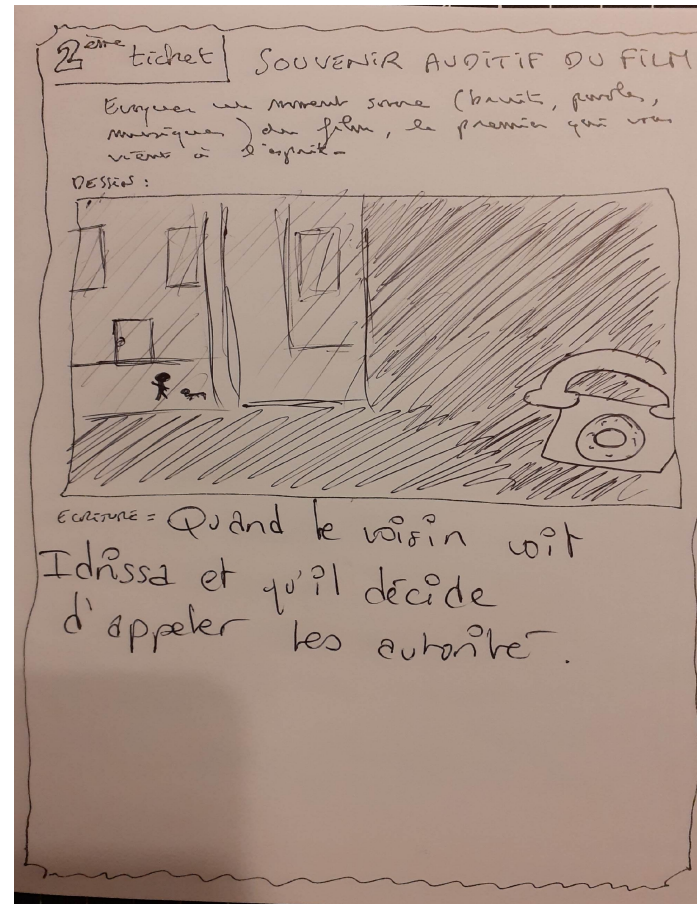 2ème ticket SOUVENIR AUDITIF DU FILM
Evoquer un moment sonore (bruits, paroles,
musiques) du film, le premier qui vous
vient à l'esprit.
DESSIN :
ECRITURE = Quand le voisin voit
Idrissa et qu'il décide
d'appeler les autorité.